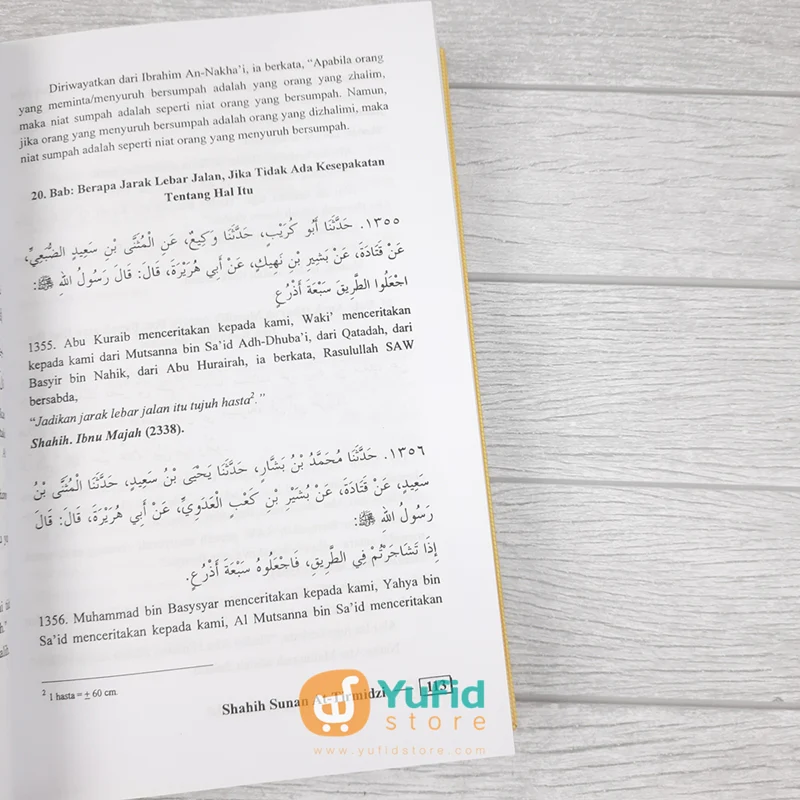 Diriwayatkan dari Ibrahim An-Nakha'i, ia berkata, "Apabila orang
yang meminta/menyuruh bersumpah adalah yang orang yang zhalim,
maka niat sumpah adalah seperti niat orang yang bersumpah. Namun,
jika orang yang menyuruh bersumpah adalah orang yang dizhalimi, maka
niat sumpah adalah seperti niat orang yang menyuruh bersumpah.
20. Bab: Berapa Jarak Lebar Jalan, Jika Tidak Ada Kesepakatan
Tentang Hal Itu
١٣٥٥. حَدَّثَنَا أَبُو كُرَيْبٍ، حَدَّثَنَا وَكِيعٌ، عَنِ الْمُثَنَّى بْنِ سَعِيدٍ الضُّبَعِيِّ،
عَنْ قَتَادَةَ، عَنْ بَشِيرِ بْنِ نَهِيكٍ، عَنْ أَبِي هُرَيْرَةَ، قَالَ: قَالَ رَسُولُ اللهِ ﷺ:
اجْعَلُوا الطَّرِيقَ سَبْعَةَ أَذْرُعٍ
1355. Abu Kuraib menceritakan kepada kami, Waki' menceritakan
kepada kami dari Mutsanna bin Sa'id Adh-Dhuba'i, dari Qatadah, dari
Basyir bin Nahik, dari Abu Hurairah, ia berkata, Rasulullah SAW
bersabda,
"Jadikan jarak lebar jalan itu tujuh hasta²."
Shahih. Ibnu Majah (2338).
١٣٥٦. حَدَّثَنَا مُحَمَّدُ بْنُ بَشَّارٍ، حَدَّثَنَا يَحْيَى بْنُ سَعِيدٍ، حَدَّثَنَا الْمُثَنَّى بْنُ
سَعِيدٍ، عَنْ قَتَادَةَ، عَنْ بُشَيْرِ بْنِ كَعْبٍ الْعَدَوِيِّ، عَنْ أَبِي هُرَيْرَةَ، قَالَ: قَالَ
رَسُولُ اللهِ ﷺ:
إِذَا تَشَاجَرْتُمْ فِي الطَّرِيقِ، فَاجْعَلُوهُ سَبْعَةَ أَذْرُعٍ.
1356. Muhammad bin Basysyar menceritakan kepada kami, Yahya bin
Sa'id menceritakan kepada kami, Al Mutsanna bin Sa'id menceritakan
² 1 hasta = ± 60 cm.
Shahih Sunan At-Tirmidzi — 113
Yufid
store
www.yufidstore.com